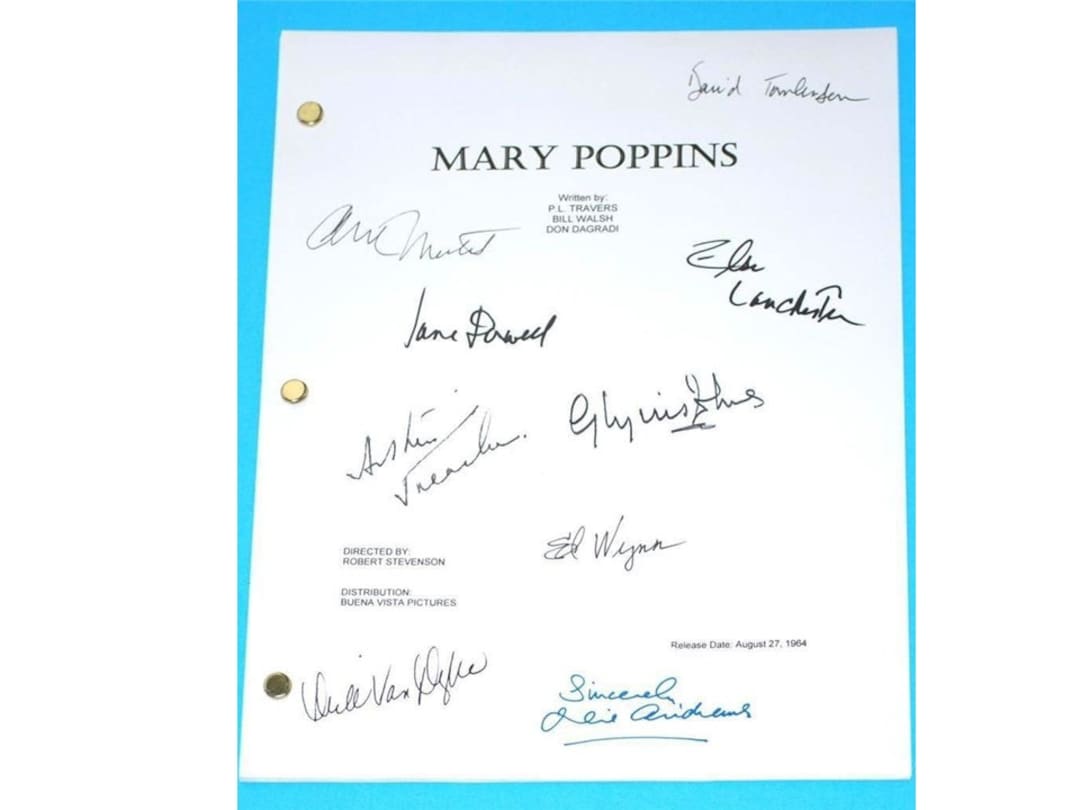 David Tomlinson
MARY POPPINS
Written by:
P.L. TRAVERS
BILL WALSH
DON DAGRADI
Elsa
Lanchester
Jane Powell
Glynis Johns
Austin
Treacher.
Ed Wynn
DIRECTED BY:
ROBERT STEVENSON
DISTRIBUTION:
BUENA VISTA PICTURES
Release Date: August 27, 1964
Dick Van Dyke
Sincerely
Julie Andrews